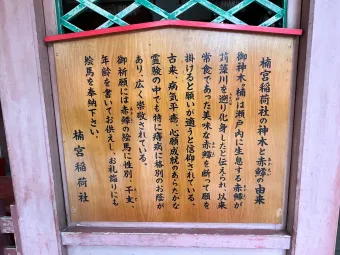 楠宮稲荷社の神木と赤鱏の由来
御神木・楠は瀬戸内に生息する赤鱏が
苅藻川を遡り化身したと伝えられ、以来
常食であった美味な赤鱏を断って願を
掛けると願いが適うと信仰されている。
古来、病気平癒、心願成就のあらたかな
霊験の中でも特に痔病に格別のお蔭が
あり、広く崇敬されている。
御祈願には赤鱏の絵馬に性別、干支、
年齢を書いてお供えし、お礼詣りにも
絵馬を奉納下さい。
楠宮稲荷社